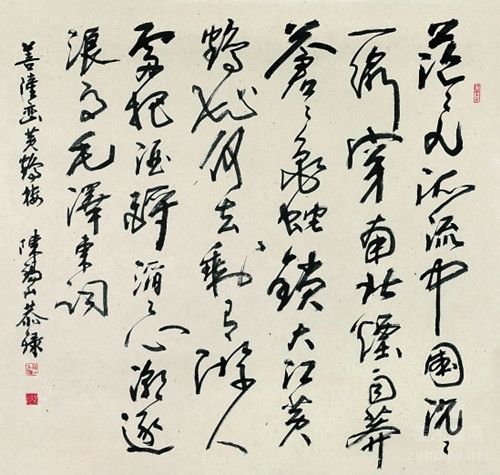 茫〻九派流中國沉〻
一線穿南北煙雨莽
蒼〻龜蛇鎖大江黃
鶴知何去剩有游人
處把酒酹滔〻心潮逐
浪高毛澤東詞
菩薩蠻黃鶴樓 陳山恭錄